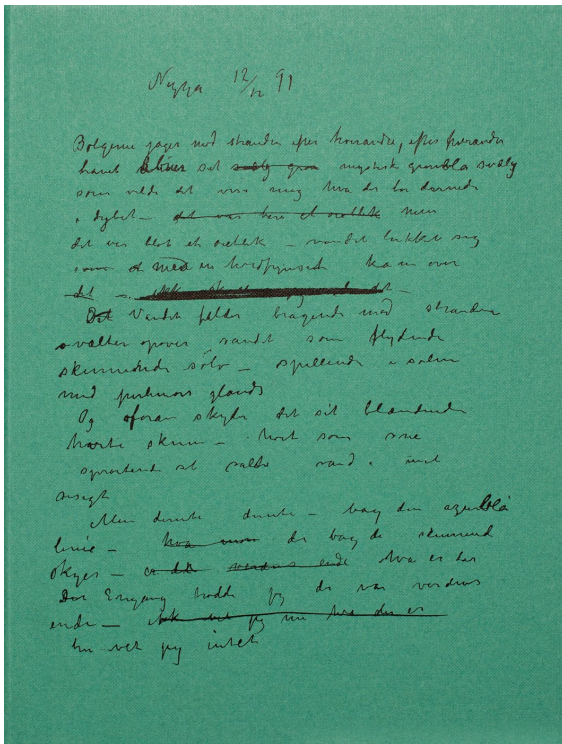 12/12 91
Bølgerne jager mod stranden efter hverandre, efter hverandre
havet åbner sit mystisk grønblå svælg
som vilde det vise mig hva der bor dernede
i dybet — det var bare et øieblikk men
det var blot et øieblik — vandet lukket sig
med en hvid kam over
det
Det Vandet falder bragende mod stranden
vælter opover sandt som flydende
skummende sølv — spillende i solen
med perlemors glands
Og foran skyder det sit blændende
hvite skum — hvit som sne
sprøitende sit salte vand i mit
ansigt
Men derute derute — bag den azurblå
linie — der bag de skinnende
skyer — er det verdens ende hva er der
Den Engang trodde jeg der var verdens
ende — nu hva der er
nu vet jeg intet